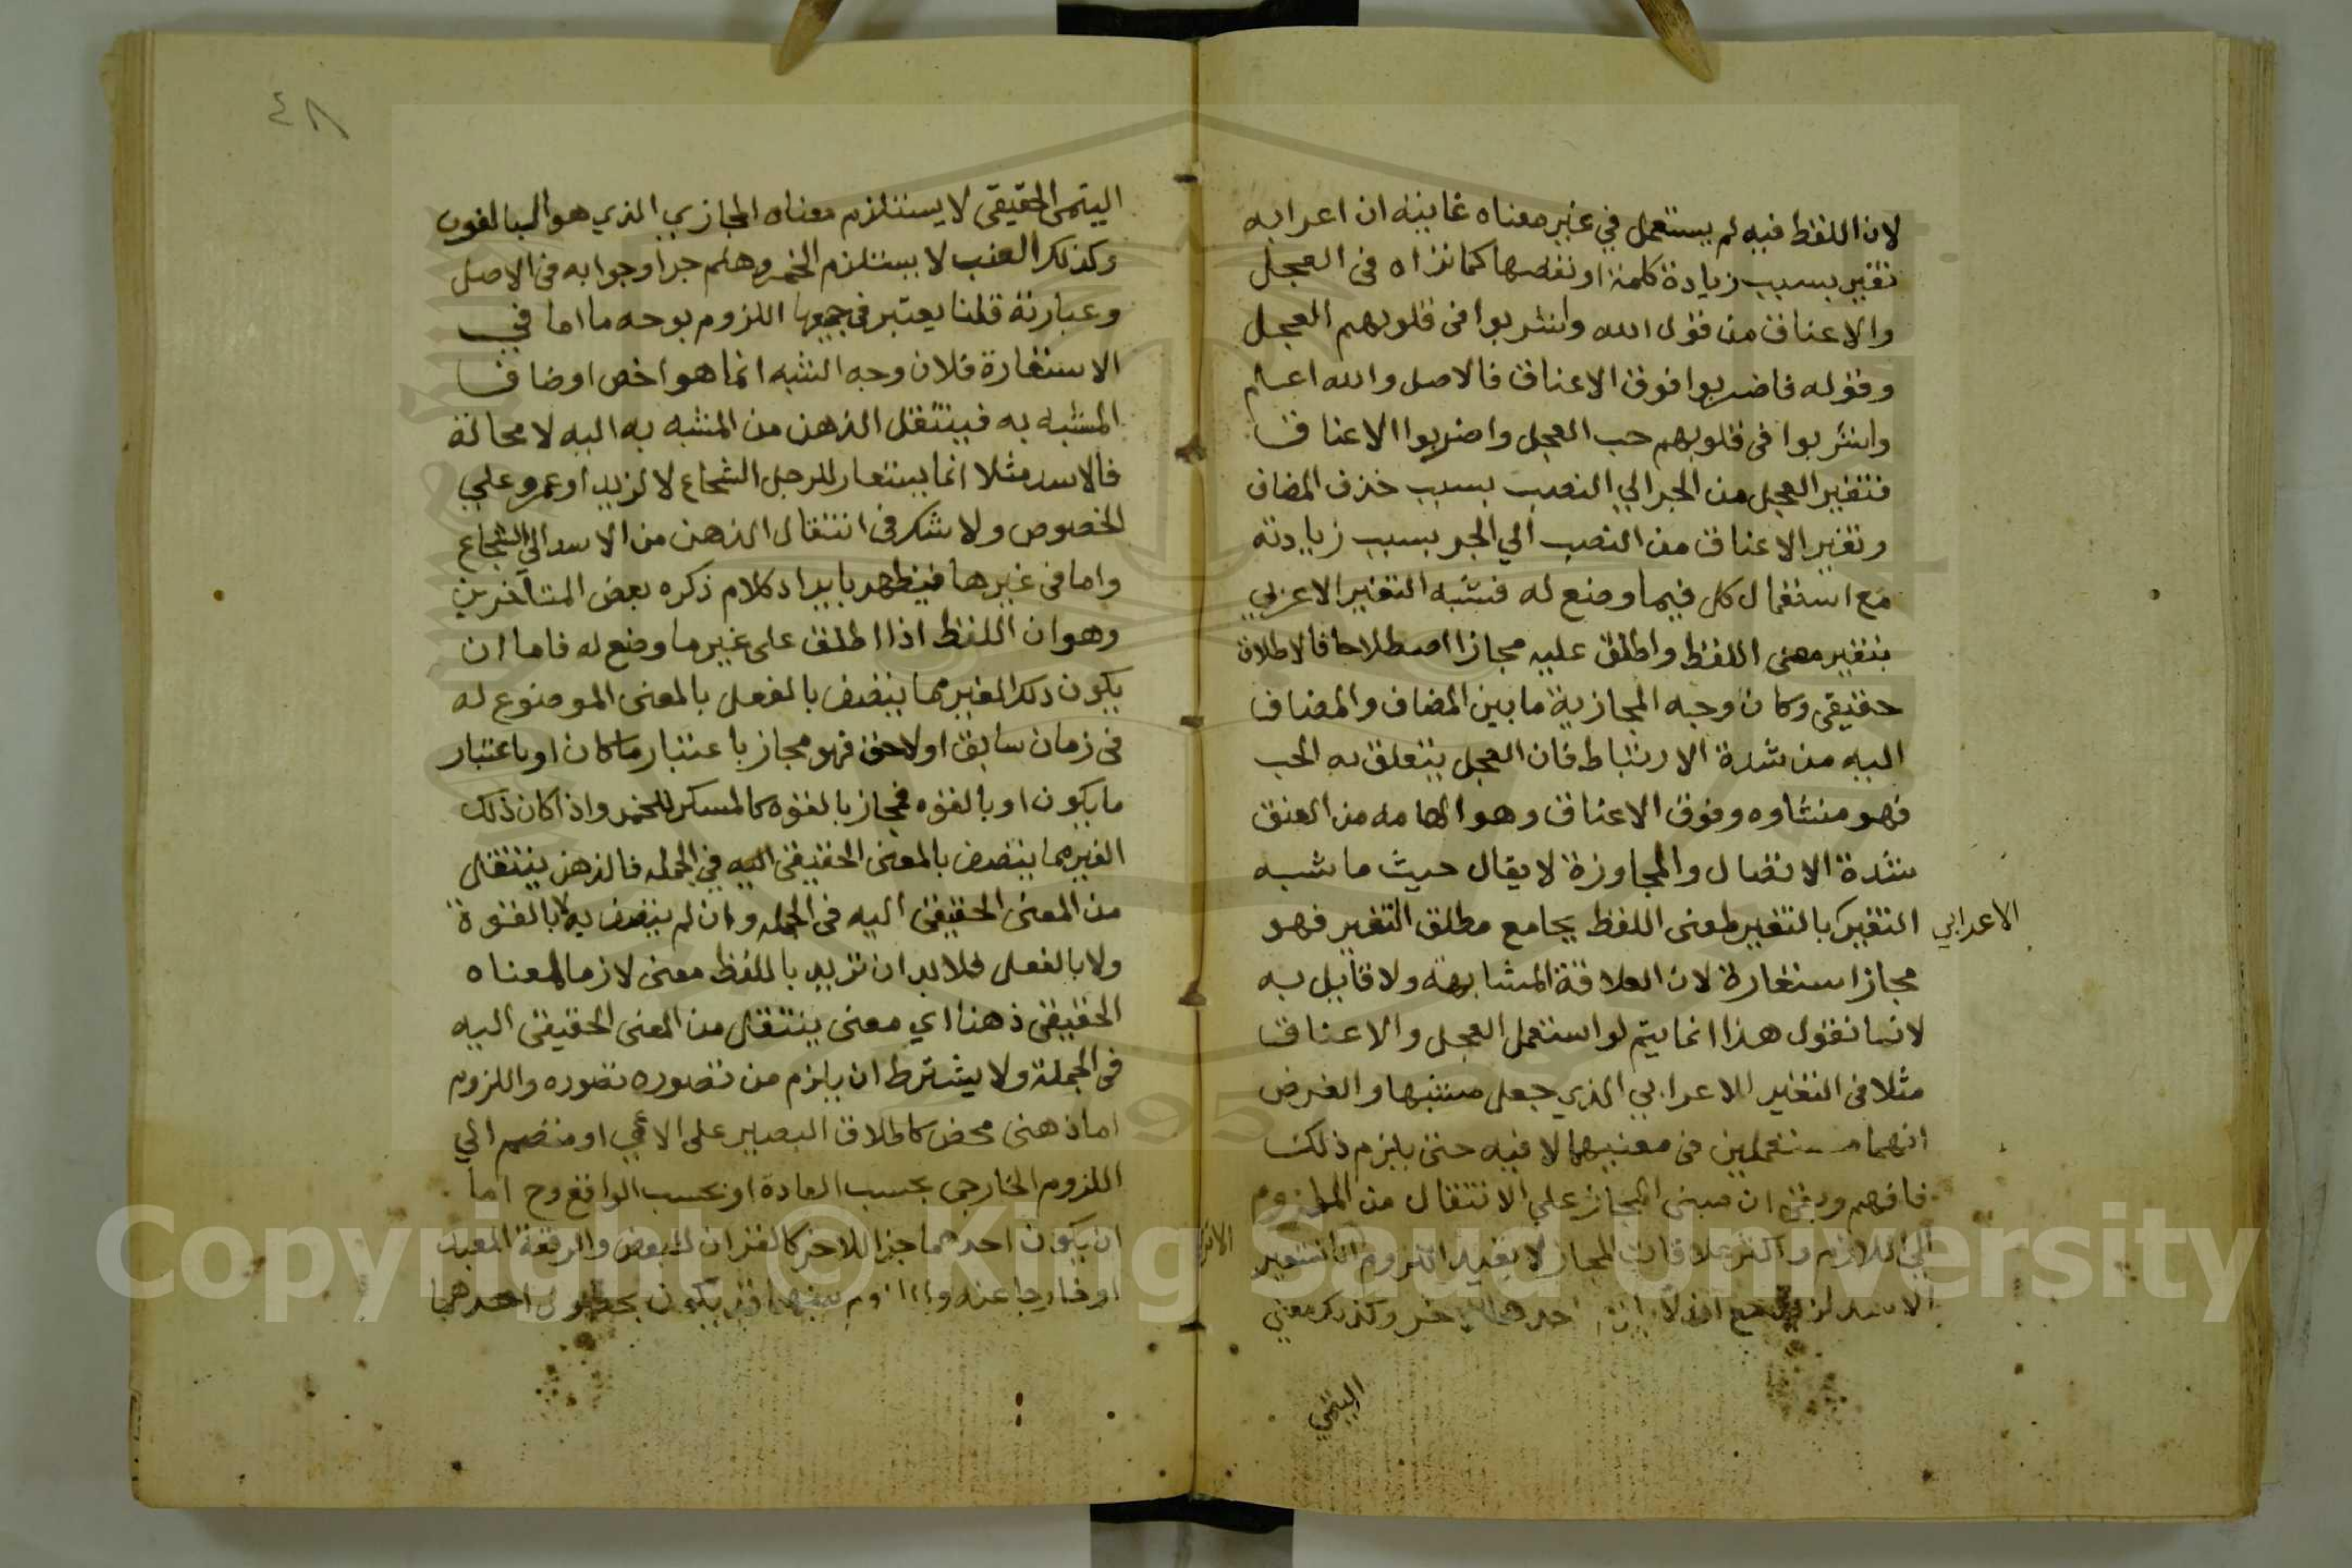 لان اللفظ فيه لم يستعمل في غير معناه غايته ان اعرابه
تغير بسبب زيادة كلمة او نقصها كما نزاه في العجل
والاعناق من قول الله واشربوا في قلوبهم العجل
وقوله فاضربوا فوق الاعناق فالاصل والله اعلم
واشربوا في قلوبهم حب العجل واضربوا الاعناق
فتغير العجل من الجر الي النصب بسبب حذف المضاف
وتغير الاعناق من النصب الي الجر بسبب زيادته
مع استعمال كل فيما وضع له فشبه التغير الاعربي
بتغير معنى اللفظ واطلق عليه مجازا اصطلاحا فالاطلاق
حقيقي وكان وجه المجازية ما بين المضاف والمضاف
اليه من شدة الارتباط فان العجل يتعلق به الحب
فهو منشاوه وفوق الاعناق وهو الهامه من العنق
شدة الاتصال والمجاوزة لا يقال حيث ما شبه
الاعرابي
التغير بالتغير لمعنى اللفظ بجامع مطلق التغير فهو
مجاز استعارة لان العلاقة المشابهة ولا قايل به
لانا نقول هذا انما يتم لو استعمل العجل والاعناق
مثلا في التغير الاعرابي الذي جعل مشبها والغرض
انهما مستعملين في معنييهما لا فيه حتى يلزم ذلك
فافهم وبقى ان مبنى المجاز علي الانتقال من الملزوم
الي اللازم واكثر علاقات المجاز لا يفيد اللزوم اذا استعير
الاسد لزيد مع انه لا احدهما الاخر وكذلك معنى
اليتمي
٤٨
اليتمى الحقيقى لا يستلزم معناه المجازي الذي هو البالغون
وكذلك العنب لا يستلزم الخمر وهلم جرا وجوابه في الاصل
وعبارته قلنا يعتبر في جميعها اللزوم بوجه ما اما في
الاستعارة فلان وجه الشبه انما هو اخص اوصاف
المشبه به فينتقل الذهن من المشبه به اليه لا محالة
فالاسد مثلا انما يستعار للرجل الشجاع لا لزيد او عمرو علي
الخصوص ولا شك في انتقال الذهن من الاسد الي الشجاع
واما في غيرها فيظهر بايراد كلام ذكره بعض المتاخرين
وهو ان اللفظ اذا اطلق على غير ما وضع له فاما ان
يكون ذلك الغير مما يتصف بالفعل بالمعنى الموضوع له
في زمان سابق او لاحق فهو مجاز باعتبار ما كان او باعتبار
ما يكون او بالقوه فمجاز بالقوه كالمسكر للخمر واذا كان ذلك
الغير مما يتصف بالمعنى الحقيقى اليه في الجمله فالذهن ينتقل
من المعنى الحقيقى اليه في الجمله وان لم يتصف به لا بالقوة
ولا بالفعل فلا بد ان تريد باللفظ معنى لازما لمعناه
الحقيقى ذهنا اي معنى ينتقل من المعنى الحقيقى اليه
في الجملة ولا يشترط ان يلزم من تصوره تصوره واللزوم
اما ذهنى محض كاطلاق البصير على الاعمي او منضم الي
اللزوم الخارجى بحسب العادة او بحسب الواقع وح اما
ان يكون احدهما جزا للاخر كالقران للبعض والرقبة للعبد
او خارجا عنه واللزوم بينهما قد يكون بحصول احدهما